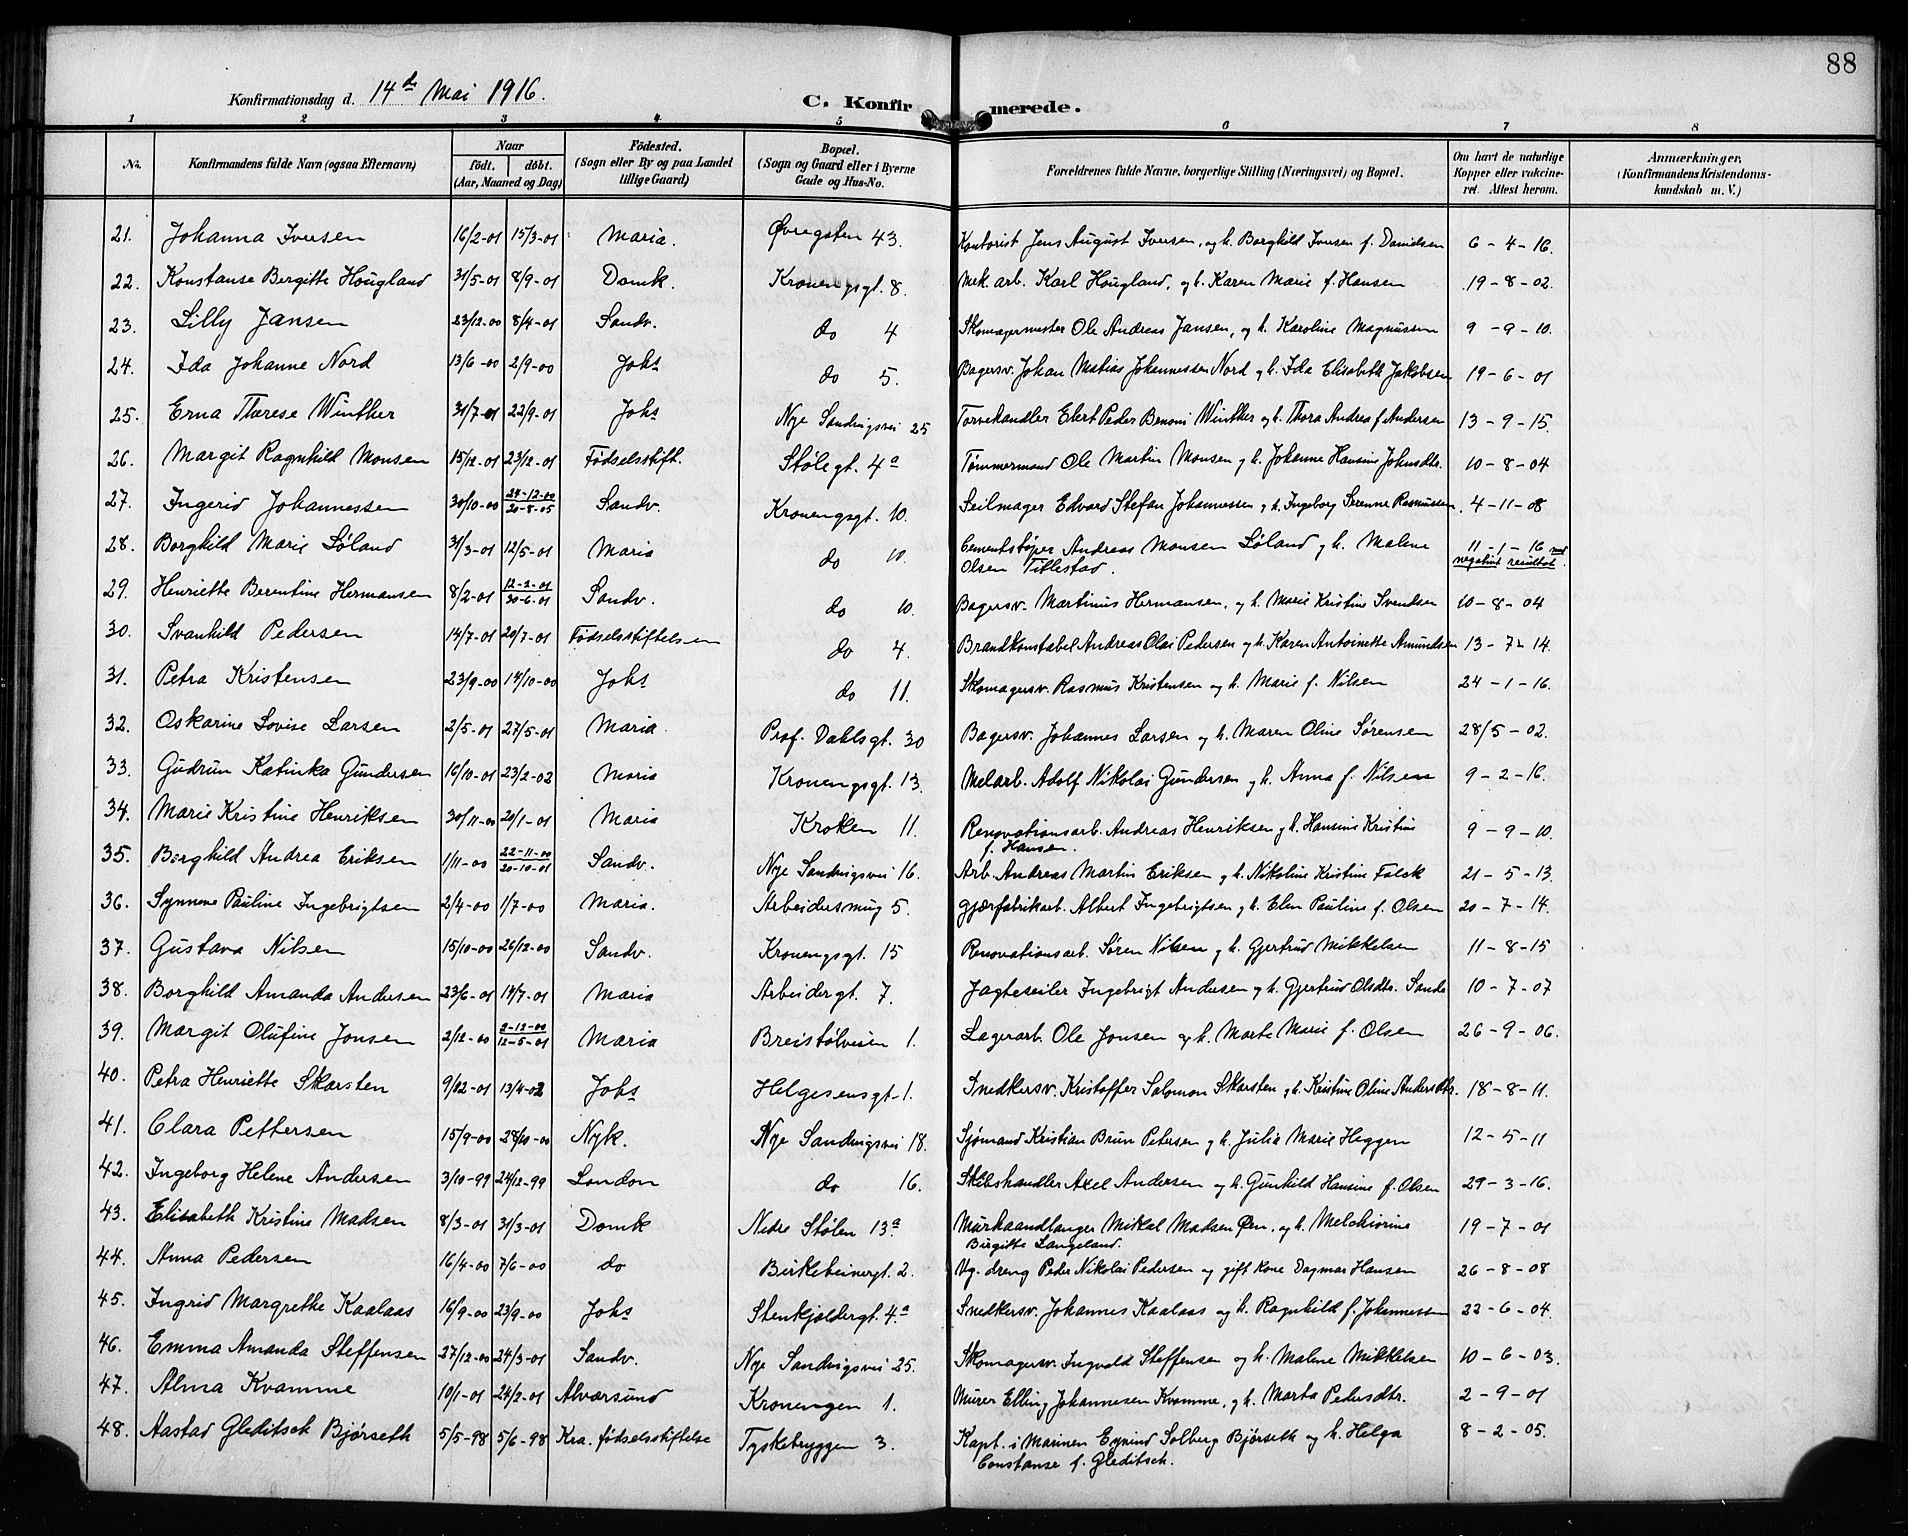 88
Konfirmationsdag d. 14de Mai 1916.
C. Konfirmerede.
1 2 3 4 5 6 7 8
No. Konfirmandens fulde Navn (ogsaa Efternavn) Naar født. døbt. (Aar, Maaned og Dag) Fødested. (Sogn eller By og paa Landet tillige Gaard) Bopæl. (Sogn og Gaard eller i Byerne Gade og Hus-No. Forældrenes fulde Navne, borgerlige Stilling (Næringsvei) og Bopæl. Om havt de naturlige Kopper eller vakcineret. Attest herom. Anmærkninger. (Konfirmandens Kristendomskundskab m. V.)
21. Johanna Iversen 16/2-01 15/3-01 Maria. Øvregaten 43. Kontorist Jens August Iversen, og h. Borghild Iversen f. Danielsen 6-4-16.
22. Konstanse Bergitte Hougland 31/5-01 8/9-01 Domk. Kronengsgt. 8. Mek. arb. Karl Hougland, og h. Karen Marie f. Hansen 19-8-02.
23. Lilly Jansen 23/12-00 8/4-01 Sandv. do 4 Skomagermester Ole Andreas Jansen, og h. Karoline Magnussen 9-9-10.
24. Ida Johanne Nord 13/6-00 2/9-00 Johs do 5. Bagersv. Johan Matias Johannessen Nord og h. Ida Elisabeth Jakobsen 19-6-01
25. Erna Therese Winther 31/7-01 22/9-01 Johs Nye Sandvigsvei 25 Torvehandler Elert Peder Benoni Winther og h. Thora Andrea f. Andersen 13-9-15.
26. Margit Ragnhild Monsen 15/12-01 23/12-01 Fødselsstift. Stølegt. 4a Tømmermand Ole Martin Monsen og h. Johanne Hansine Johnsdtr. 10-8-04
27. Ingerid Johannessen 30/10-00 24-12-00 20-8-05 Sandv. Kronengsgt. 10. Seilmager Edvard Stefan Johannessen og h. Ingeborg Serenne Rasmussen. 4-11-08
28. Borghild Marie Løland 31/3-01 12/5-01 Maria do 10. Cementstøper Andreas Monsen Løland og h. Malene Olsen Titlestad. 11-1-16 med negativt resultat.
29. Henriette Berentine Hermansen 8/2-01 12-2-01 30-6-01 Sandv. do 10. Bagersv. Martinus Hermansen, og h. Marie Kristine Svendsen 10-8-04
30. Svanhild Pedersen 14/7-01 20/7-01 Fødselsstiftelsen do 4. Brandkonstabel Andreas Olai Pedersen og h. Karen Antoinette Amundsen 13-7-14.
31. Petra Kristensen 23/9-00 14/10-00 Johs do 11. Skomagersv. Rasmus Kristensen og h. Marie f. Nilsen 24-1-16.
32. Oskarine Lovise Larsen 2/5-01 27/5-01 Maria. Prof. Dahlsgt. 30 Bagersv. Johannes Larsen og h. Maren Oline Sørensen 28/5-02.
33. Gudrun Katinka Gundersen 16/10-01 23/2-02 Maria Kronengsgt. 13. Melarb. Adolf Nikolai Gundersen og h. Anna f. Nilsen 9-2-16.
34. Marie Kristine Henriksen 30/11-00 20/1-01 Maria Kroken 11. Renovationsarb. Andreas Henriksen og h. Hansine Kristine f. Hansen. 9-9-10.
35. Borghild Andrea Eriksen 1/11-00 22-11-00 20-10-01 Sandv. Nye Sandvigsvei 16. Arb. Andreas Martin Eriksen og h. Nikoline Kristine Falck 21-5-13.
36. Synneve Pauline Ingebrigtsen 2/4-00 1/7-00 Maria. Arbeidersmug 5. Gjærfabrikarb. Albert Ingebrigtsen og h. Elen Pauline f. Olsen 20-7-14.
37. Gustava Nilsen 15/10-00 26/12-00 Sandv. Kronengsgt. 15 Renovationsarb. Søren Nilsen og h. Gjertrud Mikkelsen 11-8-15
38. Borghild Amanda Andersen 23/6-01 14/7-01 Maria Arbeidergt. 7. Jagteseiler Ingebrigt Andersen og h. Gjertrud Olsdtr. Sande 10-7-07
39. Margit Olufine Jonsen 2/12-00 2-12-00 12-5-01 Maria Breistølveien 1. Lagerarb. Ole Jonsen og h. Marte Marie f. Olsen 26-9-06.
40. Petra Henriette Skarsten 9/12-01 13/4-02 Johs Helgesensgt. 1. Snedkersv. Kristoffer Salomon Skarsten og h. Kristine Oline Andersdtr. 18-8-11.
41. Clara Pettersen 15/9-00 28/10-00 Nyk. Nye Sandvigsvei 18. Sjømand Kristian Brun Petersen og h. Julie Marie Heggen 12-5-11
42. Ingeborg Helene Andersen 3/10-99 24/12-99 London do 16. Skibshandler Axel Andersen og h. Gunhild Hansine f. Olsen 29-3-16.
43. Elisabeth Kristine Madsen 8/3-01 31/3-01 Domk Nedre Stølen 13a Murhaandlanger Mikal Madsen Øen, og h. Melchiorine Birgitte Langeland. 19-7-01
44. Anna Pedersen 16/4-00 7/6-00 do Birkebeinergt. 2. Vg. dreng Peder Nikolai Pedersen og gift Kone Dagmar Hansen 26-8-08
45. Ingrid Margrethe Kaalaas 16/9-00 23/9-00 Johs Stenkjældergt. 4a Snedkersv. Johannes Kaalaas og h. Ragnhild f. Johannessen 22-6-04.
46. Emma Amanda Steffensen 27/12-00 24/3-01 Sandv. Nye Sandvigsvei 25. Skomagersv. Ingvald Steffensen og h. Malene Mikkelsen 10-6-03.
47. Alma Kvamme 10/1-01 24/2-01 Alværsund Kronengen 1. Murer Elling Johannesen Kvamme, og h. Marta Pedersdtr. 2-9-01
48. Aastad Gleditsch Bjørseth 5/5-98 5/6-98 Kra. fødselsstiftelse Tyskebryggen 3. Kapt. i Marinen Eyvind Solberg Bjørseth og h. Helga Constanse f. Gleditsch. 8-2-05.